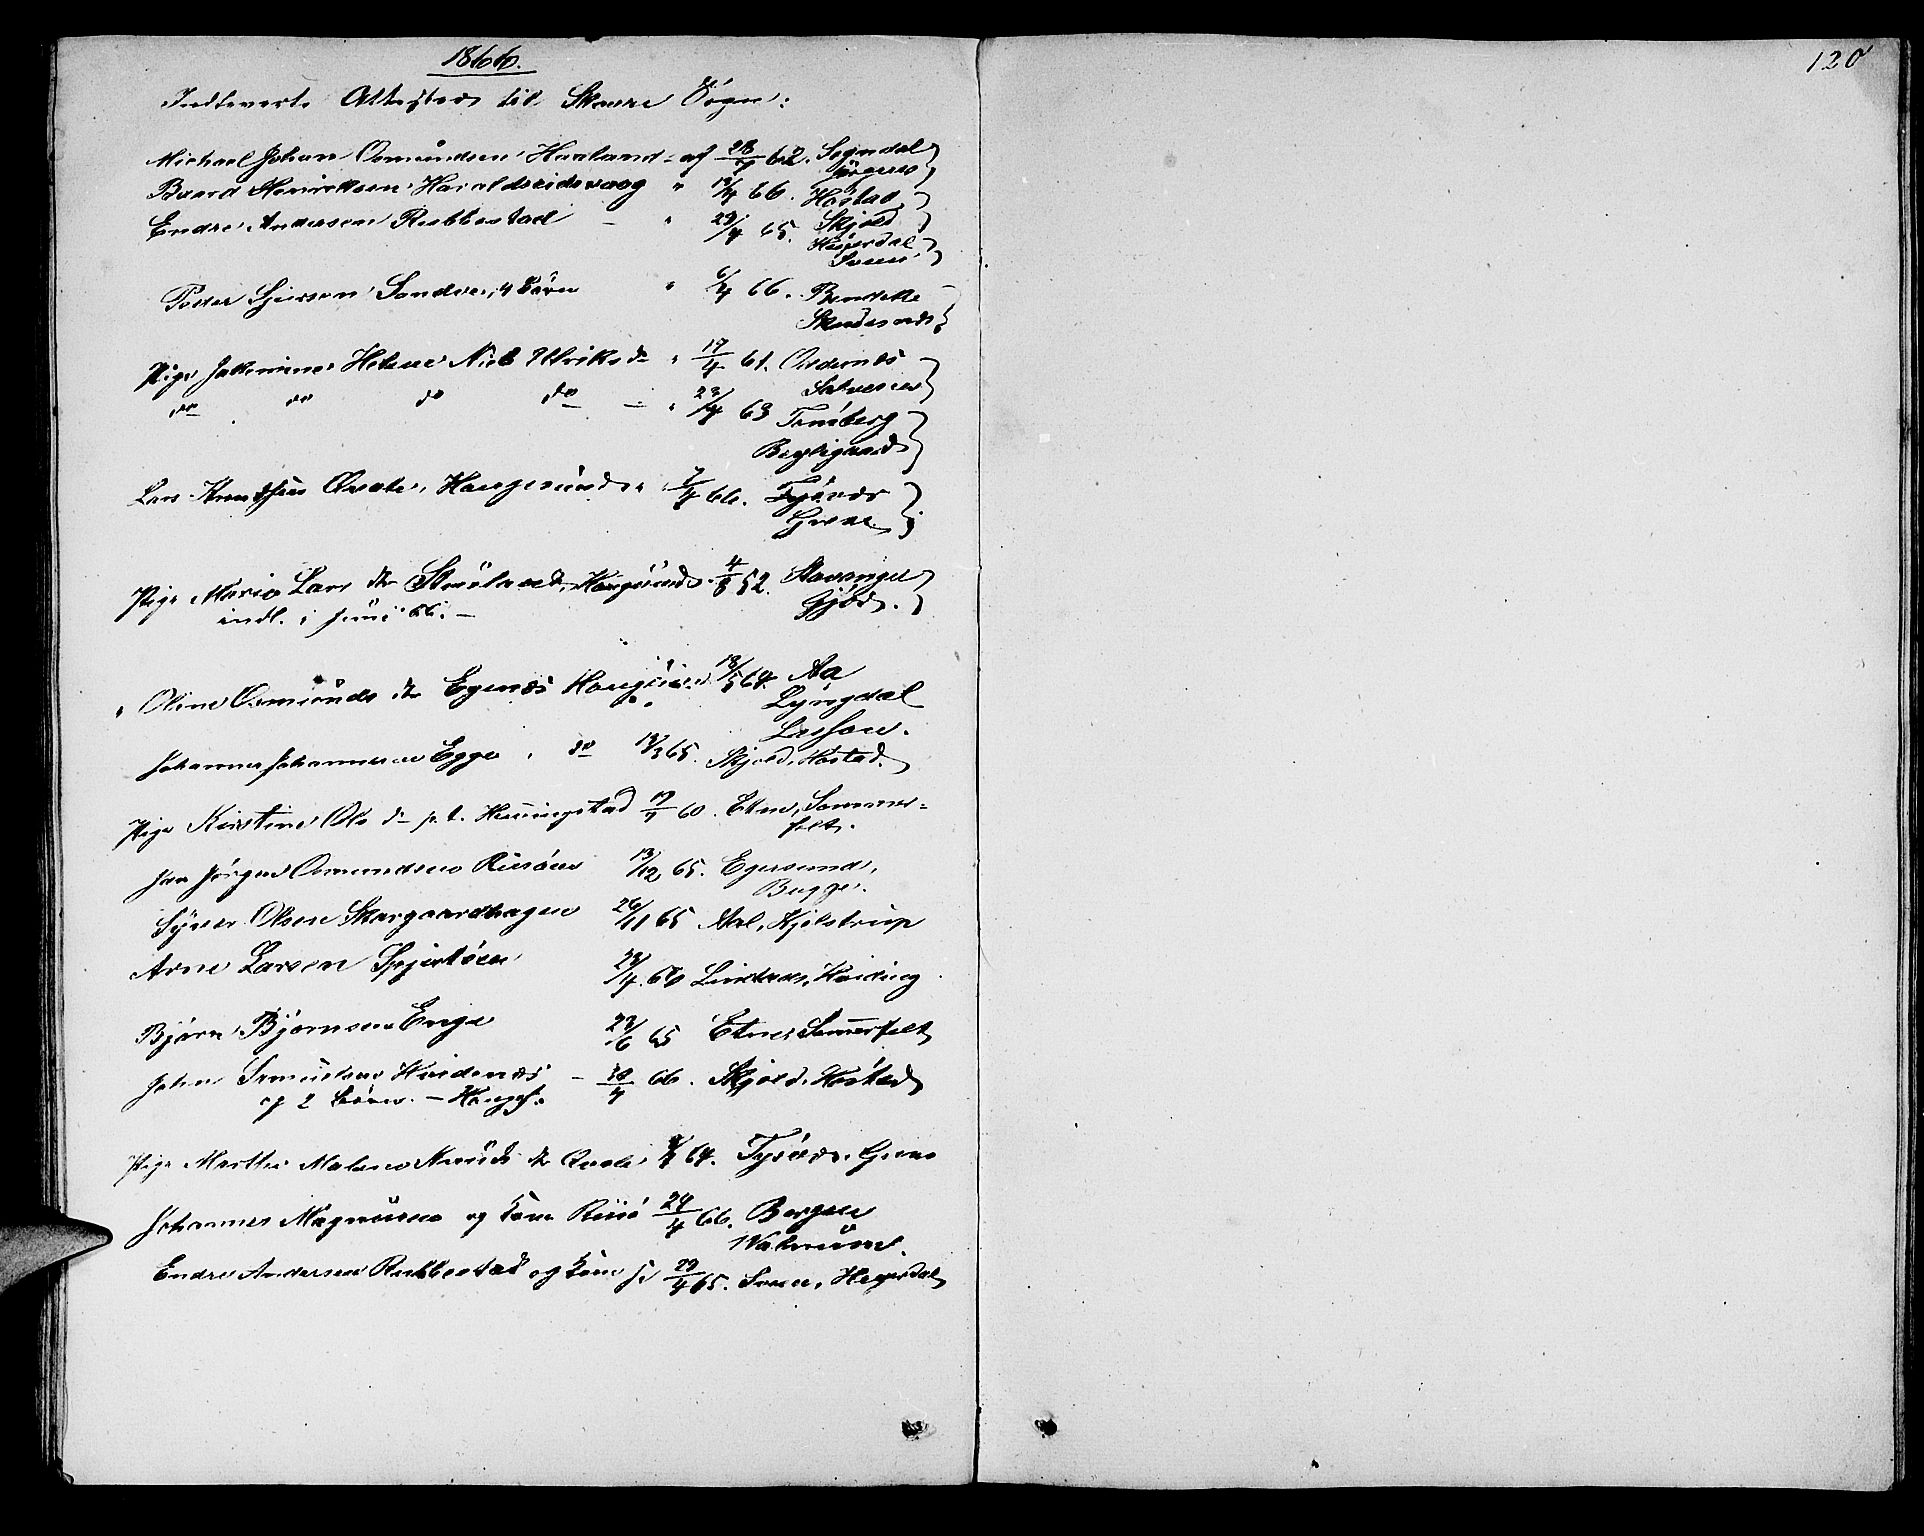 1866.
120
Indleverte Attester til Skaare Sogn:
Michael Johan Osmundsen Haaland - af 28/7 62. Sogndal
Baard Henriksen Haraldseidsvaag " 12/4 66. Hostad
Endre Andersen Rubbestad - " 23/4 65. Skjold
Heyerdal
Sveen
Peder Sjursen Sandve, 4 Børn " 6/4 66. Bendeke
Skudesnæs
Pige Jakomine Helene Niels Ulriks dr " 17/4 61. Oddernæs
Salvesen
do do do do - " 23/4 63 Tønsberg
Lars Knudsen Qvale, Haugesund " 7/4 66. Tysvær
Grene
Pige Marie Lars dr Haugesund 4/8 52. Stavanger
indl. i Juni 66. -
" Oline Osmunds dr Egenæs Haugesund 18/5 64. Aa
Lyngdal
Lassen.
Johannes Johannesen Egge " do 12/3 65. Skjold, Hostad.
Pige Kirstine Ols dr p. t. Henningstad 17/7 60. Etne, Sommer=
felt.
Jan Jørgen Osmundsen Risøen 13/12 65. Egersund,
Bugge.
Syver Olsen Skargaardhagen 26/11 65 Aal, Kjelstrup
Arne Larsen 28/4 66 Lindaas, Heiding
Bjørn Bjørnsen Enge 23/6 65 Etne, Sommerfelt
John Hardenæs - 30/4 66. Skjold, Hostad
og 2 Børn. - Hauges.
Pige Marthe Malene Knuds dr Qvale 64. Tysvær, Grene
Johannes Magnusen og Kone Risø 24/4 66. Bergen
Walnum.
Endre Andersen Rubbestad og Kone 23/4 65. Sveen, Heyerdal